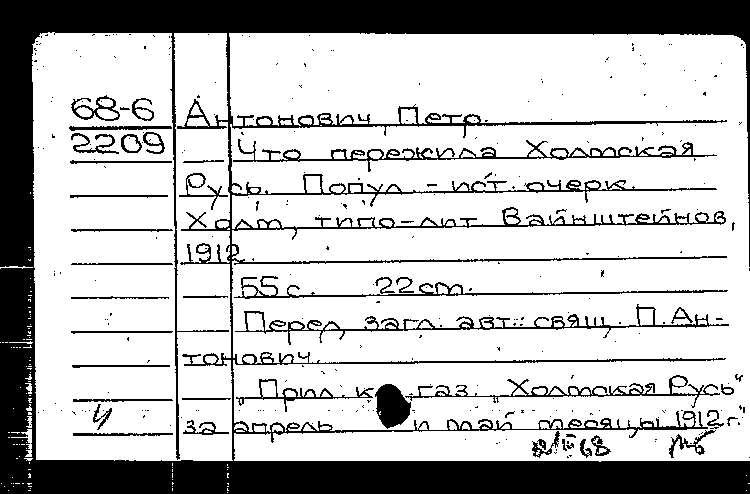 68-6 Антонович, Петр.
2209 Что пережила Холмская
Русь. Попул.-ист. очерк.
Холм, типо-лит Вайнштейнов,
1912.
55 с. 22 cm.
Перед загл. авт.: свящ. П. Ан-
тонович.
„Прил. к газ. „Холмская Русь"
за апрель и май месяцы 1912 г."
III 68